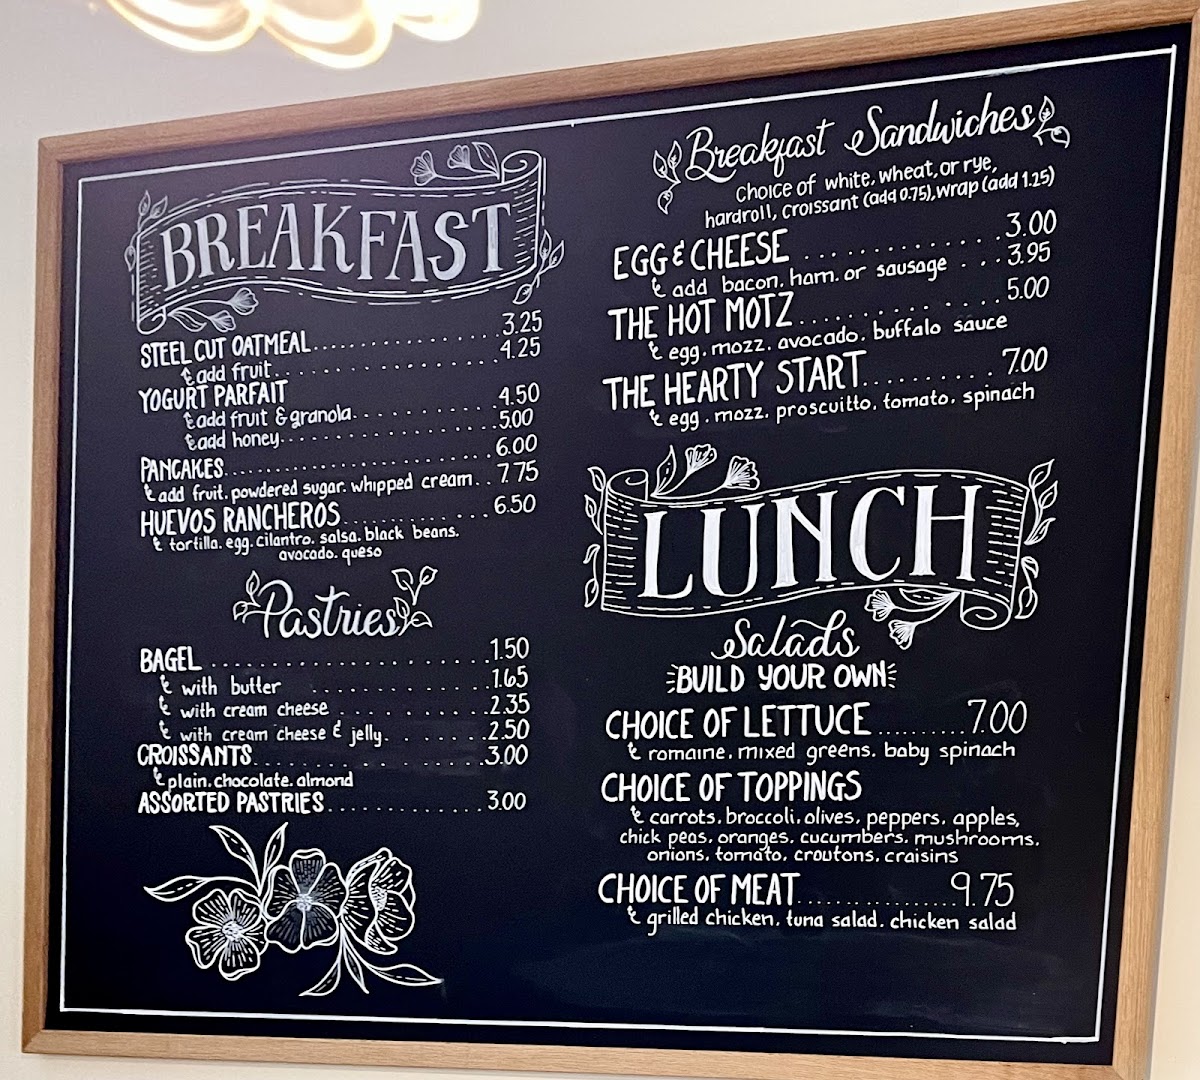 BREAKFAST
STEEL CUT OATMEAL 3.25
& add fruit 4.25
YOGURT PARFAIT
& add fruit & granola 4.50
& add honey 5.00
PANCAKES 6.00
& add fruit. powdered sugar. whipped cream 7.75
HUEVOS RANCHEROS 6.50
& tortilla. egg. cilantro. salsa. black beans.
avocado. queso
Pastries
BAGEL 1.50
& with butter 1.65
& with cream cheese 2.35
& with cream cheese & jelly 2.50
CROISSANTS 3.00
& plain. chocolate. almond
ASSORTED PASTRIES 3.00
Breakfast Sandwiches
Choice of white, wheat, or rye,
hardroll, croissant (add 0.75), wrap (add 1.25)
EGG & CHEESE 3.00
& add bacon. ham. or sausage 3.95
THE HOT MOTZ 5.00
& egg. mozz. avocado. buffalo sauce
THE HEARTY START 7.00
& egg. mozz. proscuitto. tomato. spinach
LUNCH
Salads
BUILD YOUR OWN
CHOICE OF LETTUCE 7.00
& romaine. mixed greens. baby spinach
CHOICE OF TOPPINGS
& carrots. broccoli. olives. peppers. apples,
chick peas. oranges. cucumbers. mushrooms.
onions. tomato. croutons. craisins
CHOICE OF MEAT 9.75
& grilled chicken. tuna salad. chicken salad